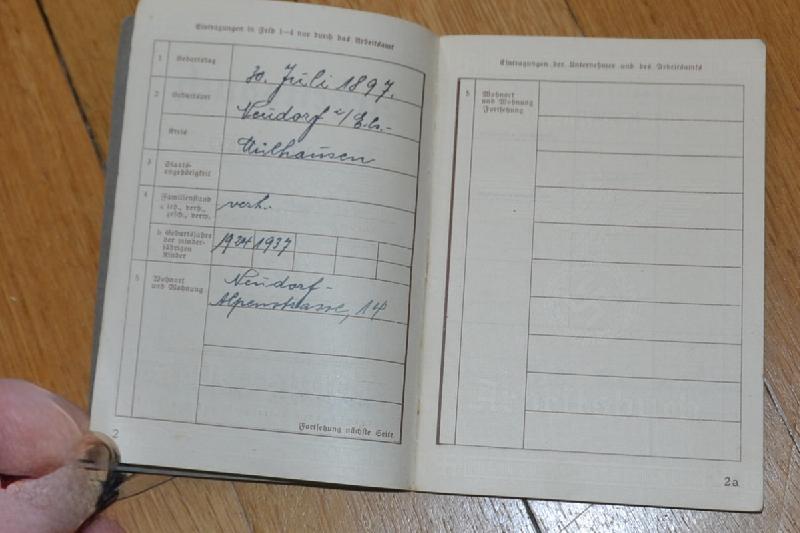 Eintragungen in Feld 1–4 nur durch das Arbeitsamt
1 Geburtstag
30. Juli 1897.
2 Geburtsort
Neudorf i/Els.-
Kreis
Mülhausen
3 Staats-
angehörigkeit
4 Familienstand
a led., verh.,
gesch., verw.
verh.
b Geburtsjahre
der minder-
jährigen
Kinder
1934 1937
5 Wohnort
und Wohnung
Neudorf-
Alpenstrasse, 14
Fortsetzung nächste Seite
2
Eintragungen der Unternehmer und des Arbeitsamts
5 Wohnort
und Wohnung
Fortsetzung
2a